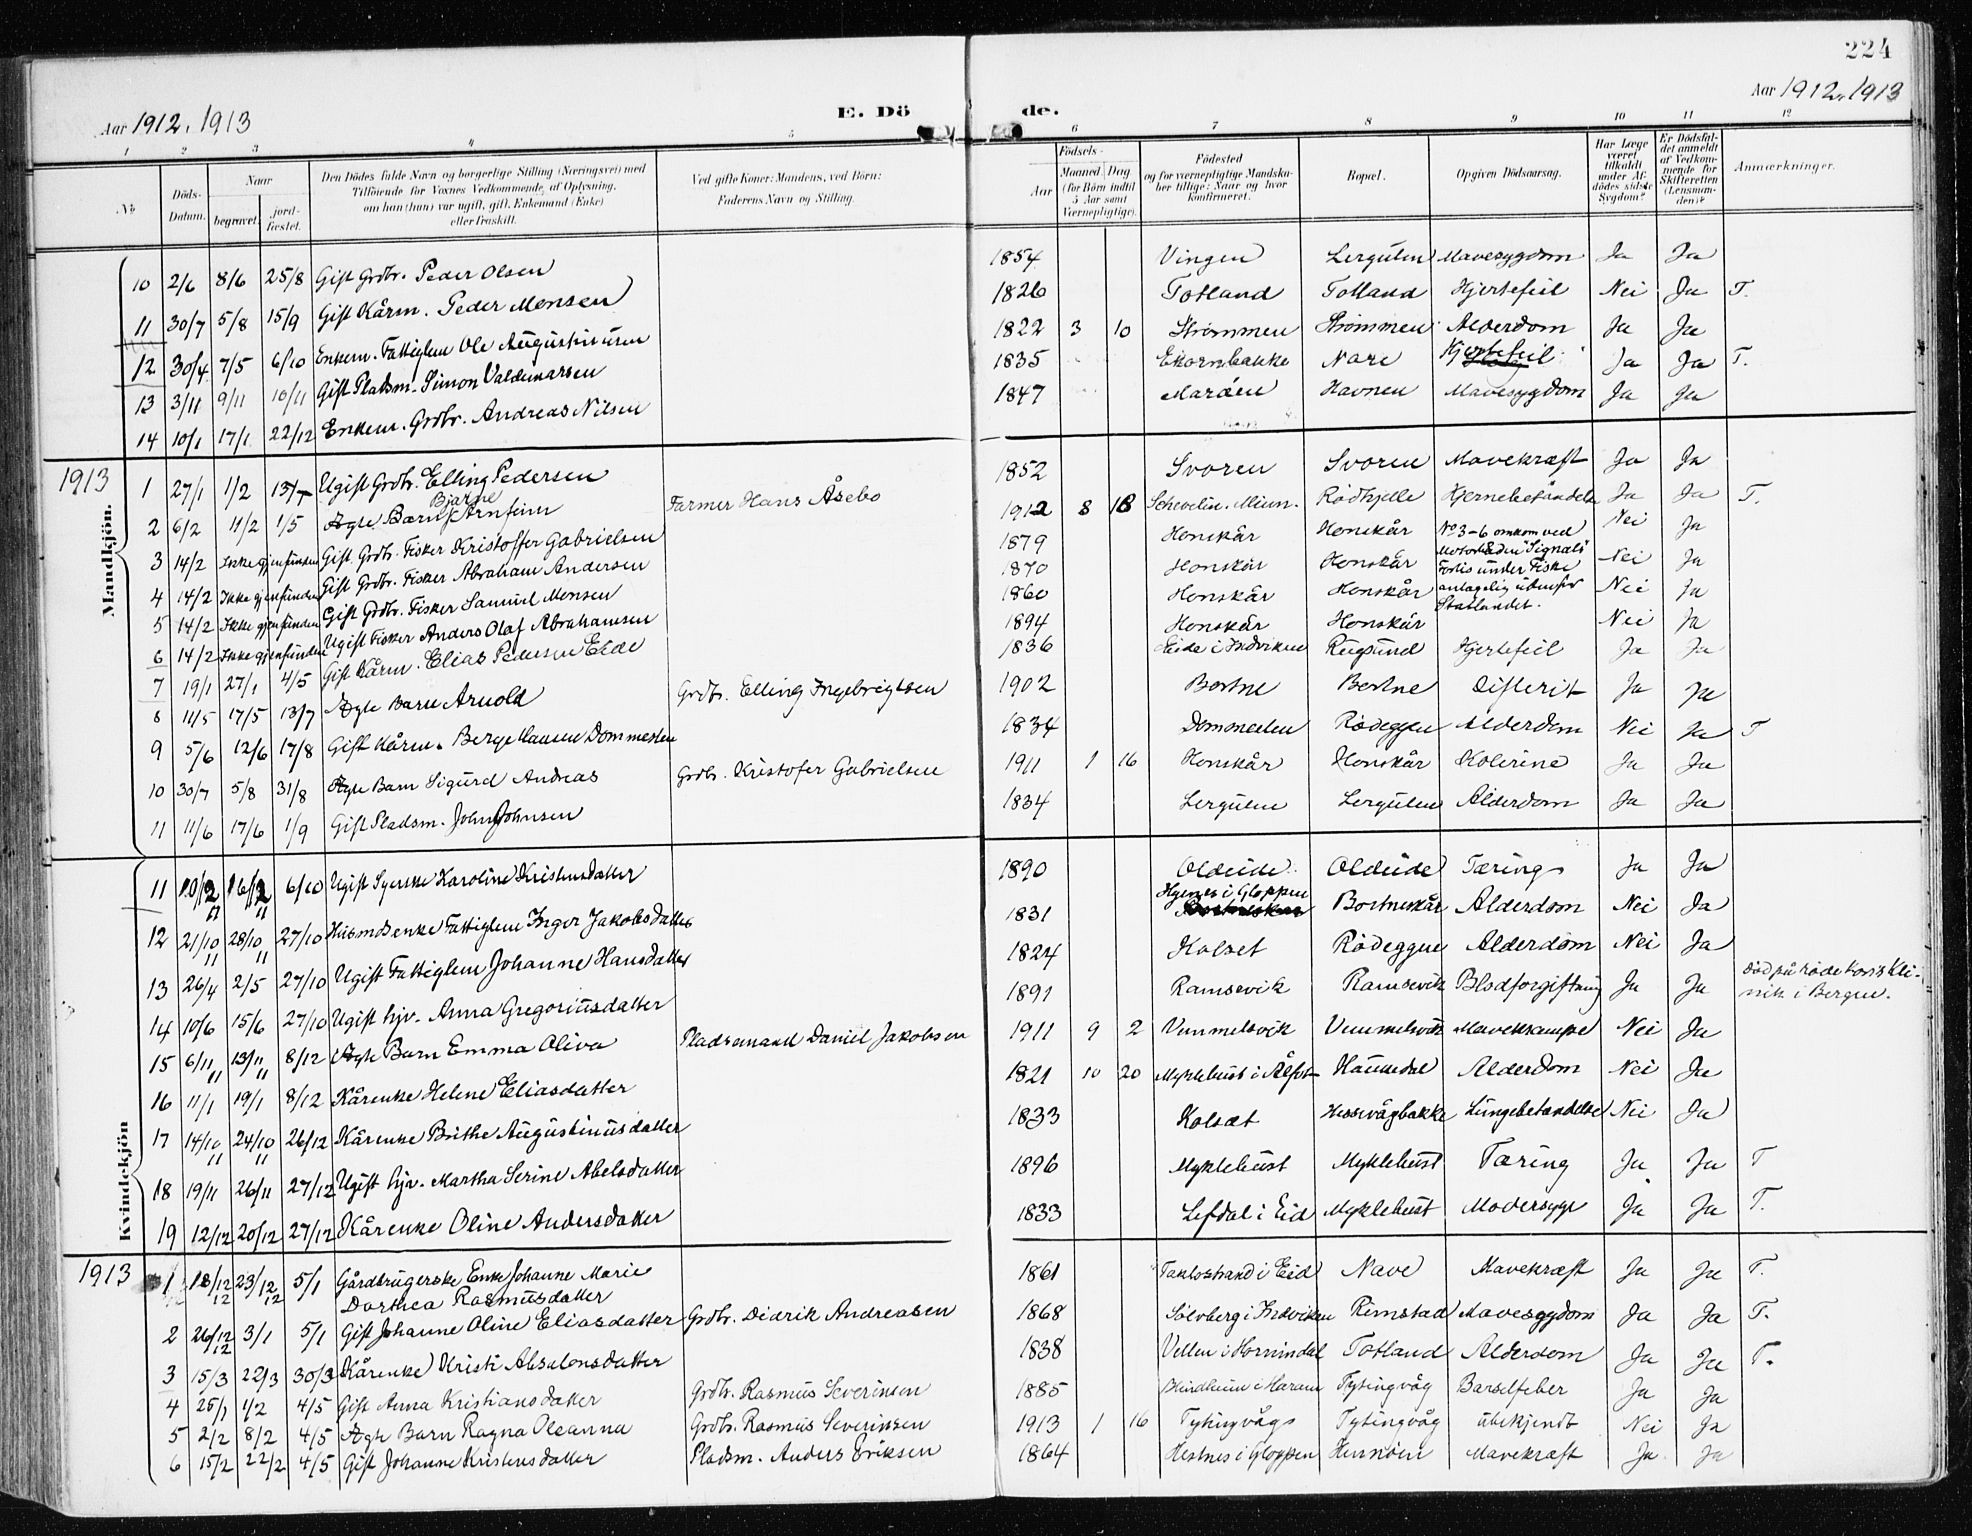 224
Aar 1912, 1913
E. Dö de.
Aar 1912, 1913
1 2 3 4 5 6 7 8 9 10 11 12
No
Döds-Datum.
Naar begravet. jordfæstet.
Den Dödes fulde Navn og borgerlige Stilling (Næringsvei) med Tilföiende for Voxnes Vedkommende af Oplysning, om han (hun) var ugift, gift, Enkemand (Enke) eller fraskilt.
Ved gifte Koner: Mandens, ved Börn: Faderens Navn og Stilling.
Födsels- Aar Maaned Dag (for Börn indtil 5 Aar samt Værnepligtige).
Födested og for værnepligtige Mandskaber tillige: Naar og hvor konfirmeret.
Bopæl.
Opgiven Dödsaarsag.
Har Læge været tilkaldt under Afdödes sidste Sygdom?
Er Dödsfaldet anmeldt af Vedkommende for Skifteretten (Lensmanden)?
Anmærkninger.
10 2/6 8/6 25/8 Gift Grdbr. Peder Olsen 1854 Vingen Lergulen Mavesygdom Ja Ja
11 30/7 5/8 15/9 Gift Kårm. Peder Monsen 1826 Totland Totland Hjertefeil Nei Ja T.
12 30/4 7/5 6/10 Enkem. Fattiglem Ole Augustinusen 1822 3 10 Strømmen Strømmen Alderdom Ja Ja
13 3/11 9/11 10/11 Gift Pladsm. Simon Valdemarsen 1835 Ekornbakke Nave Hjertefeil Ja Ja T.
14 10/1 17/1 22/12 Enkem. Grdbr. Andreas Nilsen 1847 Marøen Havnen Mavesygdom Ja Ja
1913
Mandkjön.
1 27/1 1/2 13/7 Ugift Grdbr. Elling Pedersen 1852 Svoren Svoren Mavekræft Ja Ja
2 6/2 11/2 1/5 Ægte Barn Bjarne Arnfinn Farmer Hans Åsebo 1912 8 18 Rødkjelle Ja Ja T.
3 14/2 Ikke gjenfunden Gift Grdbr. Fisker Kristoffer Gabrielsen 1879 Honskår Honskår No 3-6 omkom ved Nei Ja
4 14/2 Ikke gjenfunden Gift Grdbr. Fisker Abraham Andersen 1870 Honskår Honskår Motorbåden "Signals" Nei Ja
5 14/2 Ikke gjenfunden Gift Grdbr. Fisker Samuel Monsen 1860 Honskår Honskår Forlis under Fiske Nei Ja
6 14/2 Ikke gjenfunden Ugift Fisker Anders Olaf Abrahamsen 1894 Honskår Honskår antagelig udenfor Statlandet. Nei Ja
7 19/1 27/1 4/5 Gift Kårm. Elias Pedersen Eide 1836 Eide i Indviken Rugsund Hjertefeil Ja Ja
8 11/5 17/5 13/7 Ægte Barn Arnold Grdbr. Elling Ingebrigtsen 1902 Bortne Bortne Difterit Ja Ja
9 5/6 12/6 17/8 Gift Kårm. Berge Hansen Dommesten 1834 Dommesten Rødeggen Alderdom Nei Ja T
10 30/7 5/8 31/8 Ægte Barn Sigurd Andreas Grdbr. Kristofer Gabrielsen 1911 1 16 Honskår Honskår Kolerine Ja Ja
11 11/6 17/6 1/9 Gift Pladsm. John Johnsen 1834 Lergulen Lergulen Alderdom Ja Ja
Kvindekjön
11 6/10 Ugift Syerske Karoline Kristensdatter 1890 Oldeide Oldeide Tæring Ja Ja
12 21/10 28/10 27/10 Husmdsenke Fattiglem Inger Jakobsdatter 1831 Hjemes i Gloppen Bortneskår Alderdom Nei Ja
13 26/4 2/5 27/10 Ugift Fattiglem Johanne Hansdatter 1824 Kolset Rødeggen Alderdom Nei Ja
14 10/6 15/6 27/10 Ugift hjv. Anna Gregoriusdatter 1891 Ramsevik Ramsevik Blodforgiftning Ja Ja Død på røde Kors's Klinik i Bergen.
15 6/11 13/11 8/12 Ægte Barn Emma Oliva Pladsemand Daniel Jakobsen 1911 9 2 Vemmelsvik Vemmelsvik Mavekrampe Nei Ja
16 11/1 19/1 8/12 Kårenke Helene Eliasdatter 1821 10 20 Myklebust i Ålfot Haunedal Alderdom Nei Ja
17 14/10 24/10 26/12 Kårenke Brithe Augustinusdatter 1833 Kolset Hessevågbakke Lungebetændelse Nei Ja
18 19/11 26/11 27/12 Ugift hjv. Martha Serine Abelsdatter 1896 Myklebust Myklebust Tæring Ja Ja T
19 12/12 20/12 27/12 Kårenke Oline Andersdatter 1833 Lefdal i Eid Myklebust Modersyge Ja Ja T.
1913
1 18/12 12 23/12 12 5/1 Gårdbrugerske Enke Johanne Marie Dorthea Rasmusdatter 1861 Taklostrand i Eid Nave Mavekræft Ja Ja T.
2 26/12 12 3/1 5/1 Gift Johanne Oline Eliasdatter Grdbr. Didrik Andreasen 1868 Sølvberg i Indviken Rimstad Mavesygdom Ja Ja T.
3 15/3 22/3 30/3 Kårenke Kristi Absalonsdatter 1838 Vellen i Hornindal Totland Alderdom Ja Ja T.
4 25/1 1/2 4/5 Gift Anna Kristiansdatter Grdbr. Rasmus Severinsen 1885 Blindheim i Haram Tytingvåg Barselfeber Ja Ja
5 2/2 8/2 4/5 Ægte Barn Ragna Oleanna Grdbr. Rasmus Severinsen 1913 1 16 Tytingvåg Tytingvåg ubekjendt Nei Ja
6 15/2 22/2 4/5 Gift Johanne Kristensdatter Pladsm. Anders Eriksen 1864 Hestnes i Gloppen Hennøen Mavekræft Ja Ja